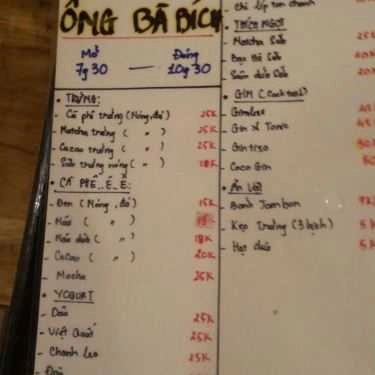 ÔNG BÃ BÍCH
Mở Đóng
7g30 — 10g30
• TRỨNG:
- Cà phê trứng (Nóng, đá) 25K
- Matcha trứng ( " ) 25K
- Cacao trứng ( " ) 25K
- Sữa trứng nóng ( " ) 18K
• CÀ PHÊ..Ê..Ề:
- Đen (Nóng, đá) 15K
- Nâu ( " )
- Nâu dừa ( " ) 18K
- Cacao ( " ) 20K
- Mocha 25K
• YOGURT
- Dâu 25K
- Việt Quất 25K
- Chanh leo 25K
- Chi líp tơn chanh
• THÍCH NGỌT
- Matcha Sữa 25K
- Bạc Hà Sữa 20K
- Sâm dứa Sữa 20K
• GIM (Cocktail)
- Gimless
- Gin & Tonic
- Gintreo
- Coco Gin
• Ăn Vặt
- Bánh Jambon
- Kẹo Trứng (3 bịch) 5K
- Hạt dưa 5K